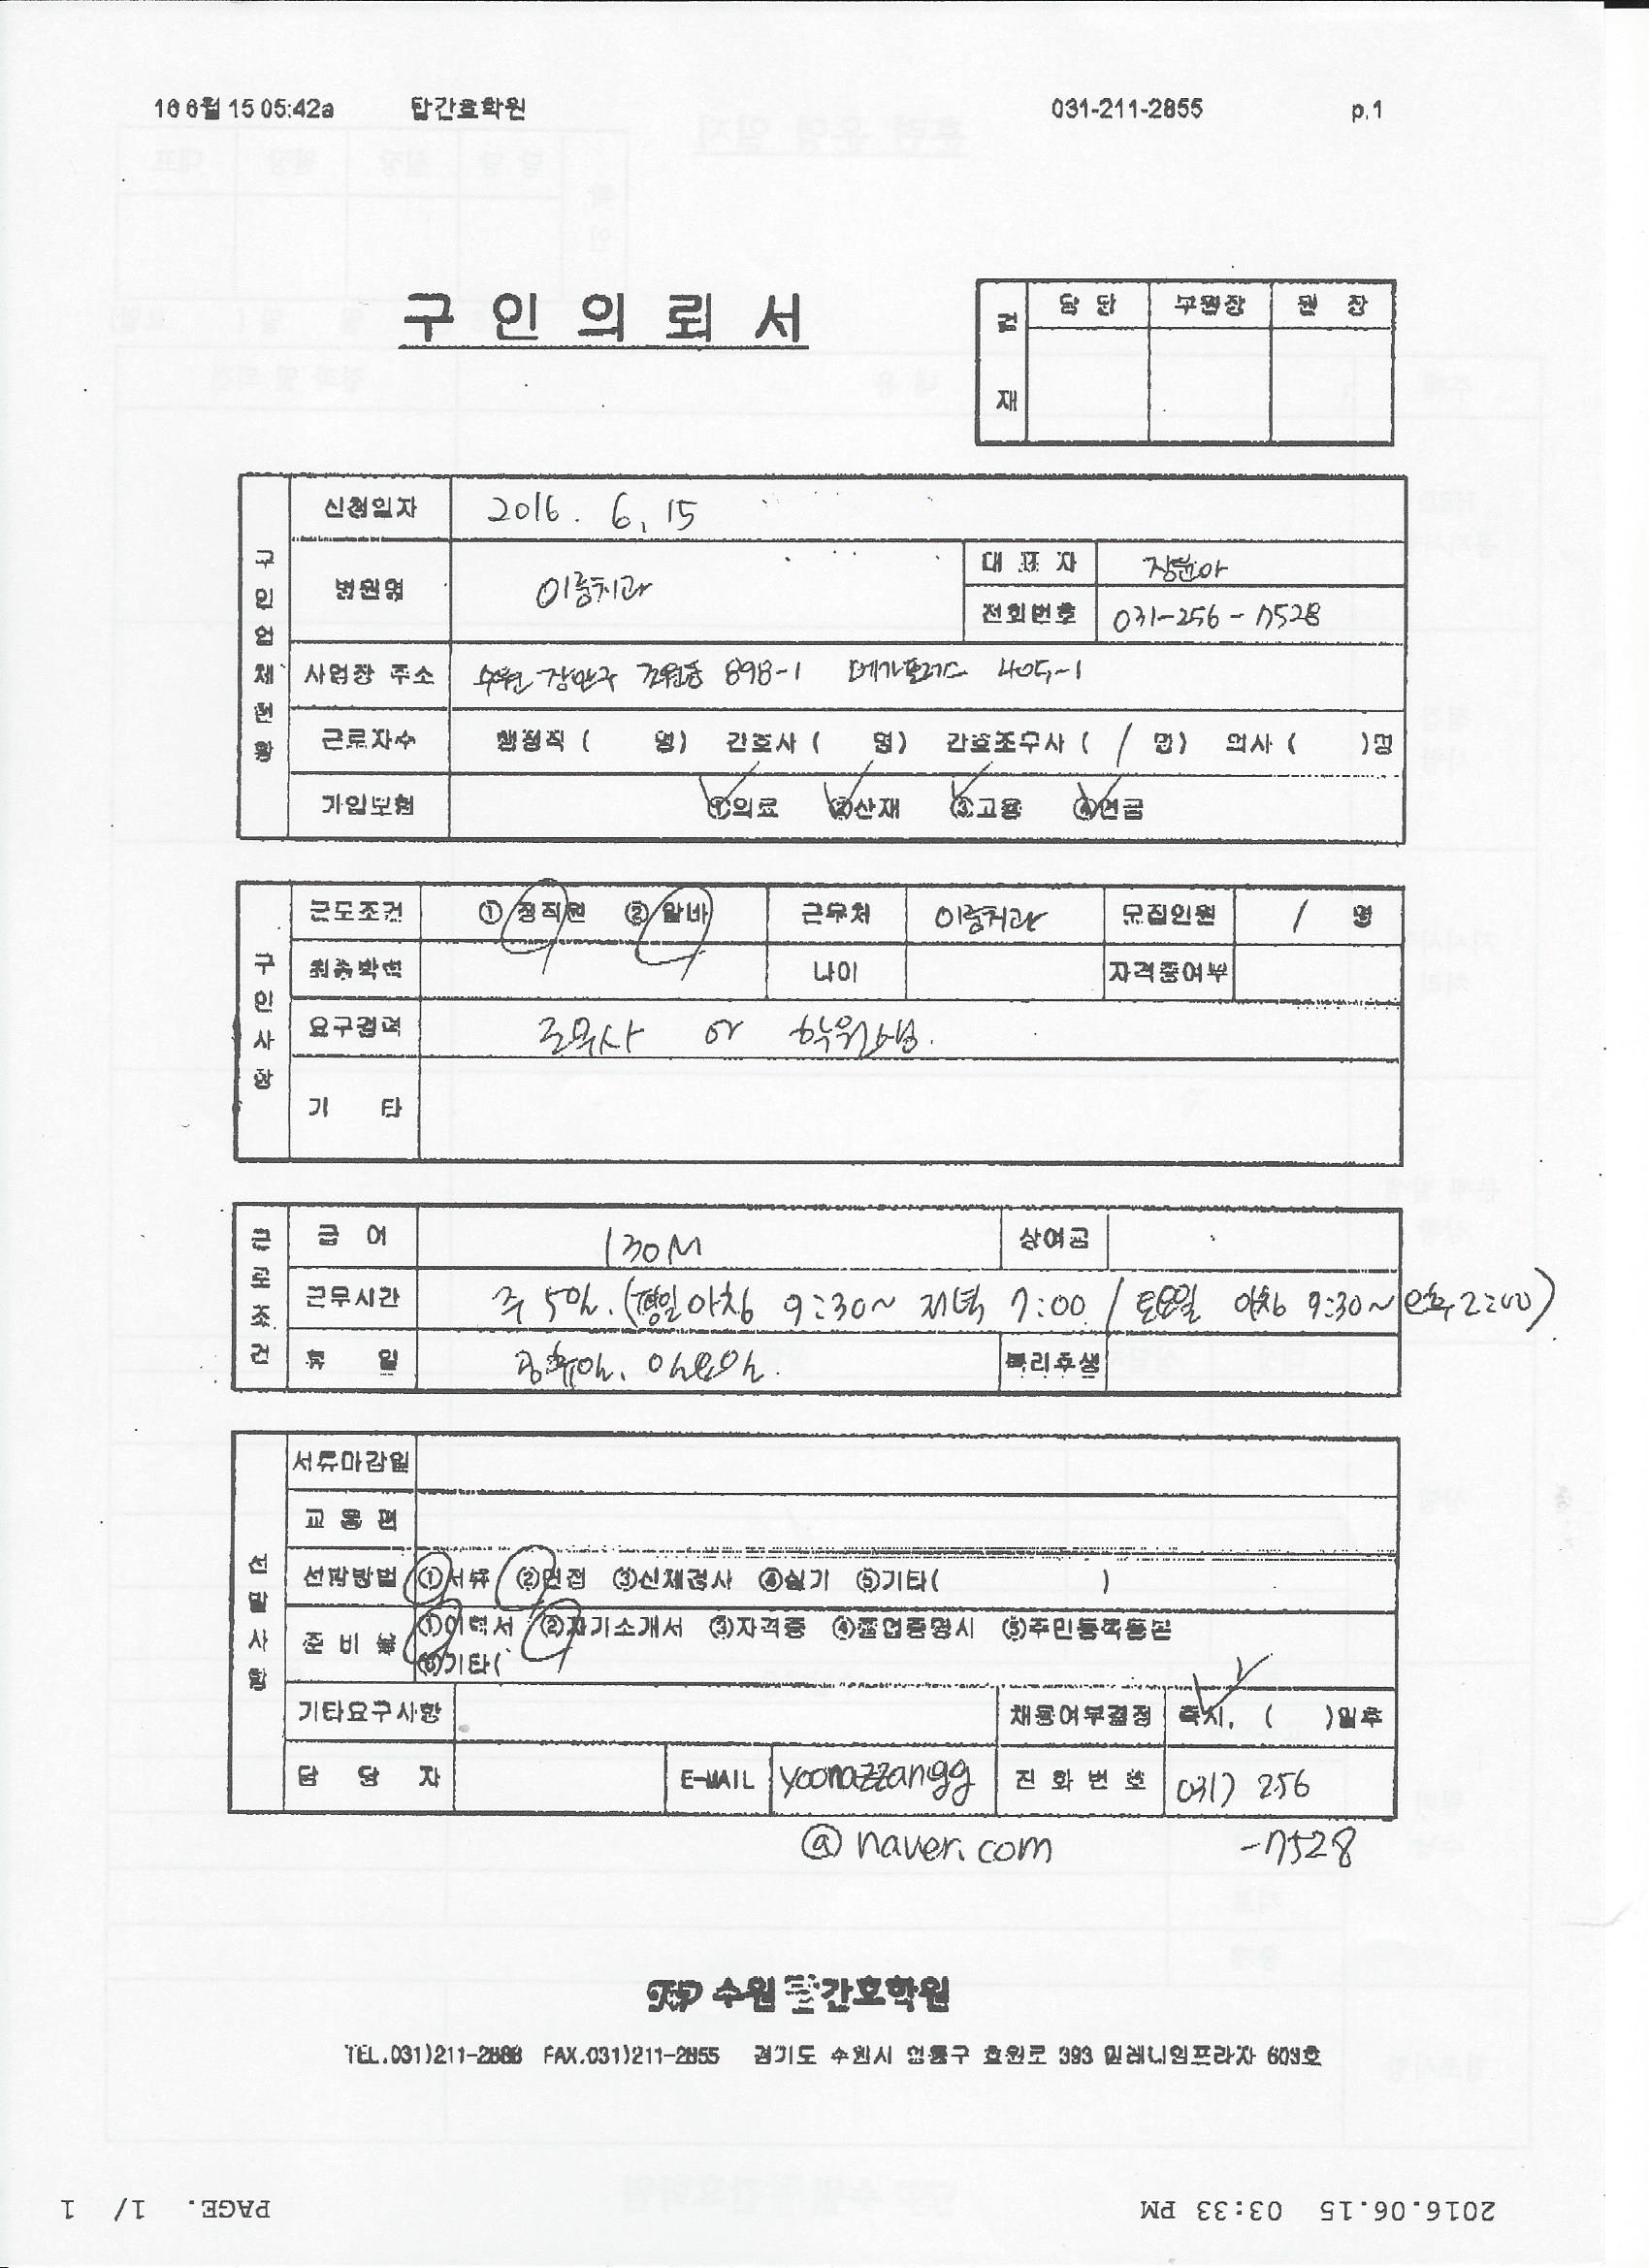 16 6월 15 05:42a 탑간호학원 031-211-2855 p.1
구 인 의 뢰 서
결 재 담 당 부원장 원 장
구 인 업 체 현 황
신청일자 2016. 6. 15
병원명 이룸치과 대 표 자 장윤아
전화번호 031-256-7528
사업장 주소 수원 장안구 조원동 898-1 메가플러스 405-1
근로자수 행정직 ( 명) 간호사 ( 명) 간호조무사 ( / 명) 의사 ( )명
가입보험 ①의료 ②산재 ③고용 ④연금
구 인 사 항
근로조건 ① 정직원 ② 알바 근무처 이룸치과 모집인원 / 명
최종학력 나이 자격증여부
요구경력 조무사 or 학원생.
기 타
근 로 조 건
급 여 130M 상여금
근무시간 주 5일. (평일 아침 9:30~ 저녁 7:00 / 토요일 아침 9:30~ 오후 2:00)
휴 일 공휴일. 일요일. 복리후생
선 발 사 항
서류마감일
교 통 편
선발방법 ①서류 ②면접 ③신체검사 ④실기 ⑤기타( )
준 비 물 ①이력서 ②자기소개서 ③자격증 ④졸업증명서 ⑤주민등록등본
⑥기타(
기타요구사항 채용여부결정 즉시, ( )일후
담 당 자 E-MAIL yoonazzangg 전 화 번 호 031) 256
@naver.com -7528
수원 탑간호학원
TEL.031)211-2888 FAX.031)211-2855 경기도 수원시 영통구 효원로 393 밀레니엄프라자 603호
2016.06.15 03:33 PM PAGE. 1/ 1